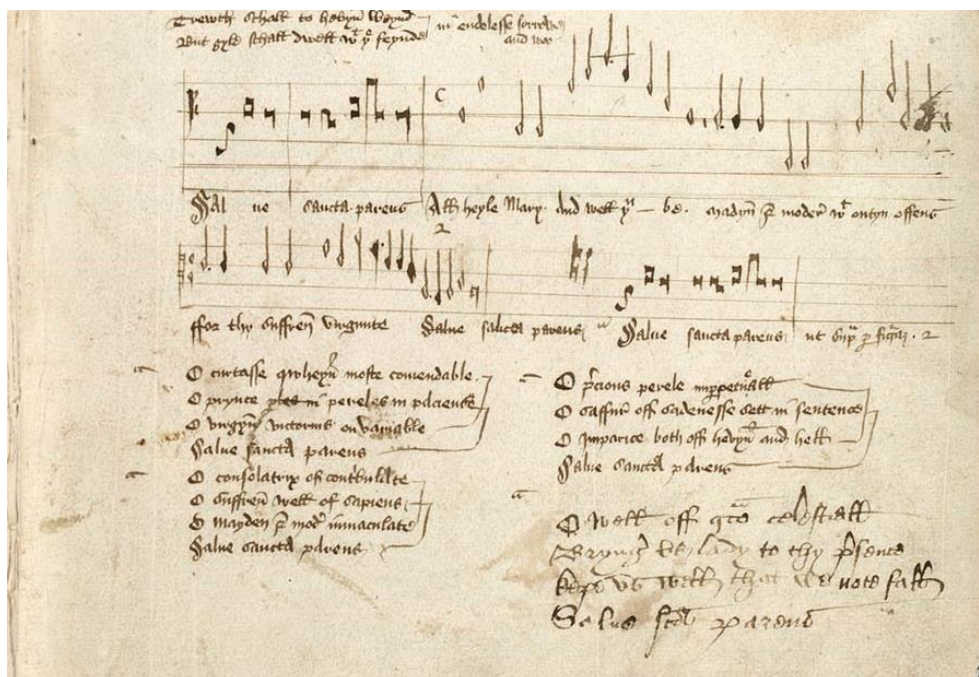 Trewth schall to hevyn weynd
But gyle schall dwell wt ye feynde in endelesse sorrow
and wo
Salve sancta parens All heyle Mary And well yu be. madyn & moder wt outyn offens
ffor thy suffren Salve sancta parens Salve sancta parens ut
O curtasse qwheyn moste comendable
O prynce pereles in paciens
O virgyn victorius on variable
Salve sancta parens
O consolatrix of contribulate
O suffren well of sapiens
O mayden & moder immaculate
Salve sancta parens
O precious perele
O saffir off sadenesse sett in sentence
O imparice both off hevyn and hell
Salve sancta parens
O well off gra celestiall
Bryng lady to thy presence
kepe us well that we note fall
Salve sca parens